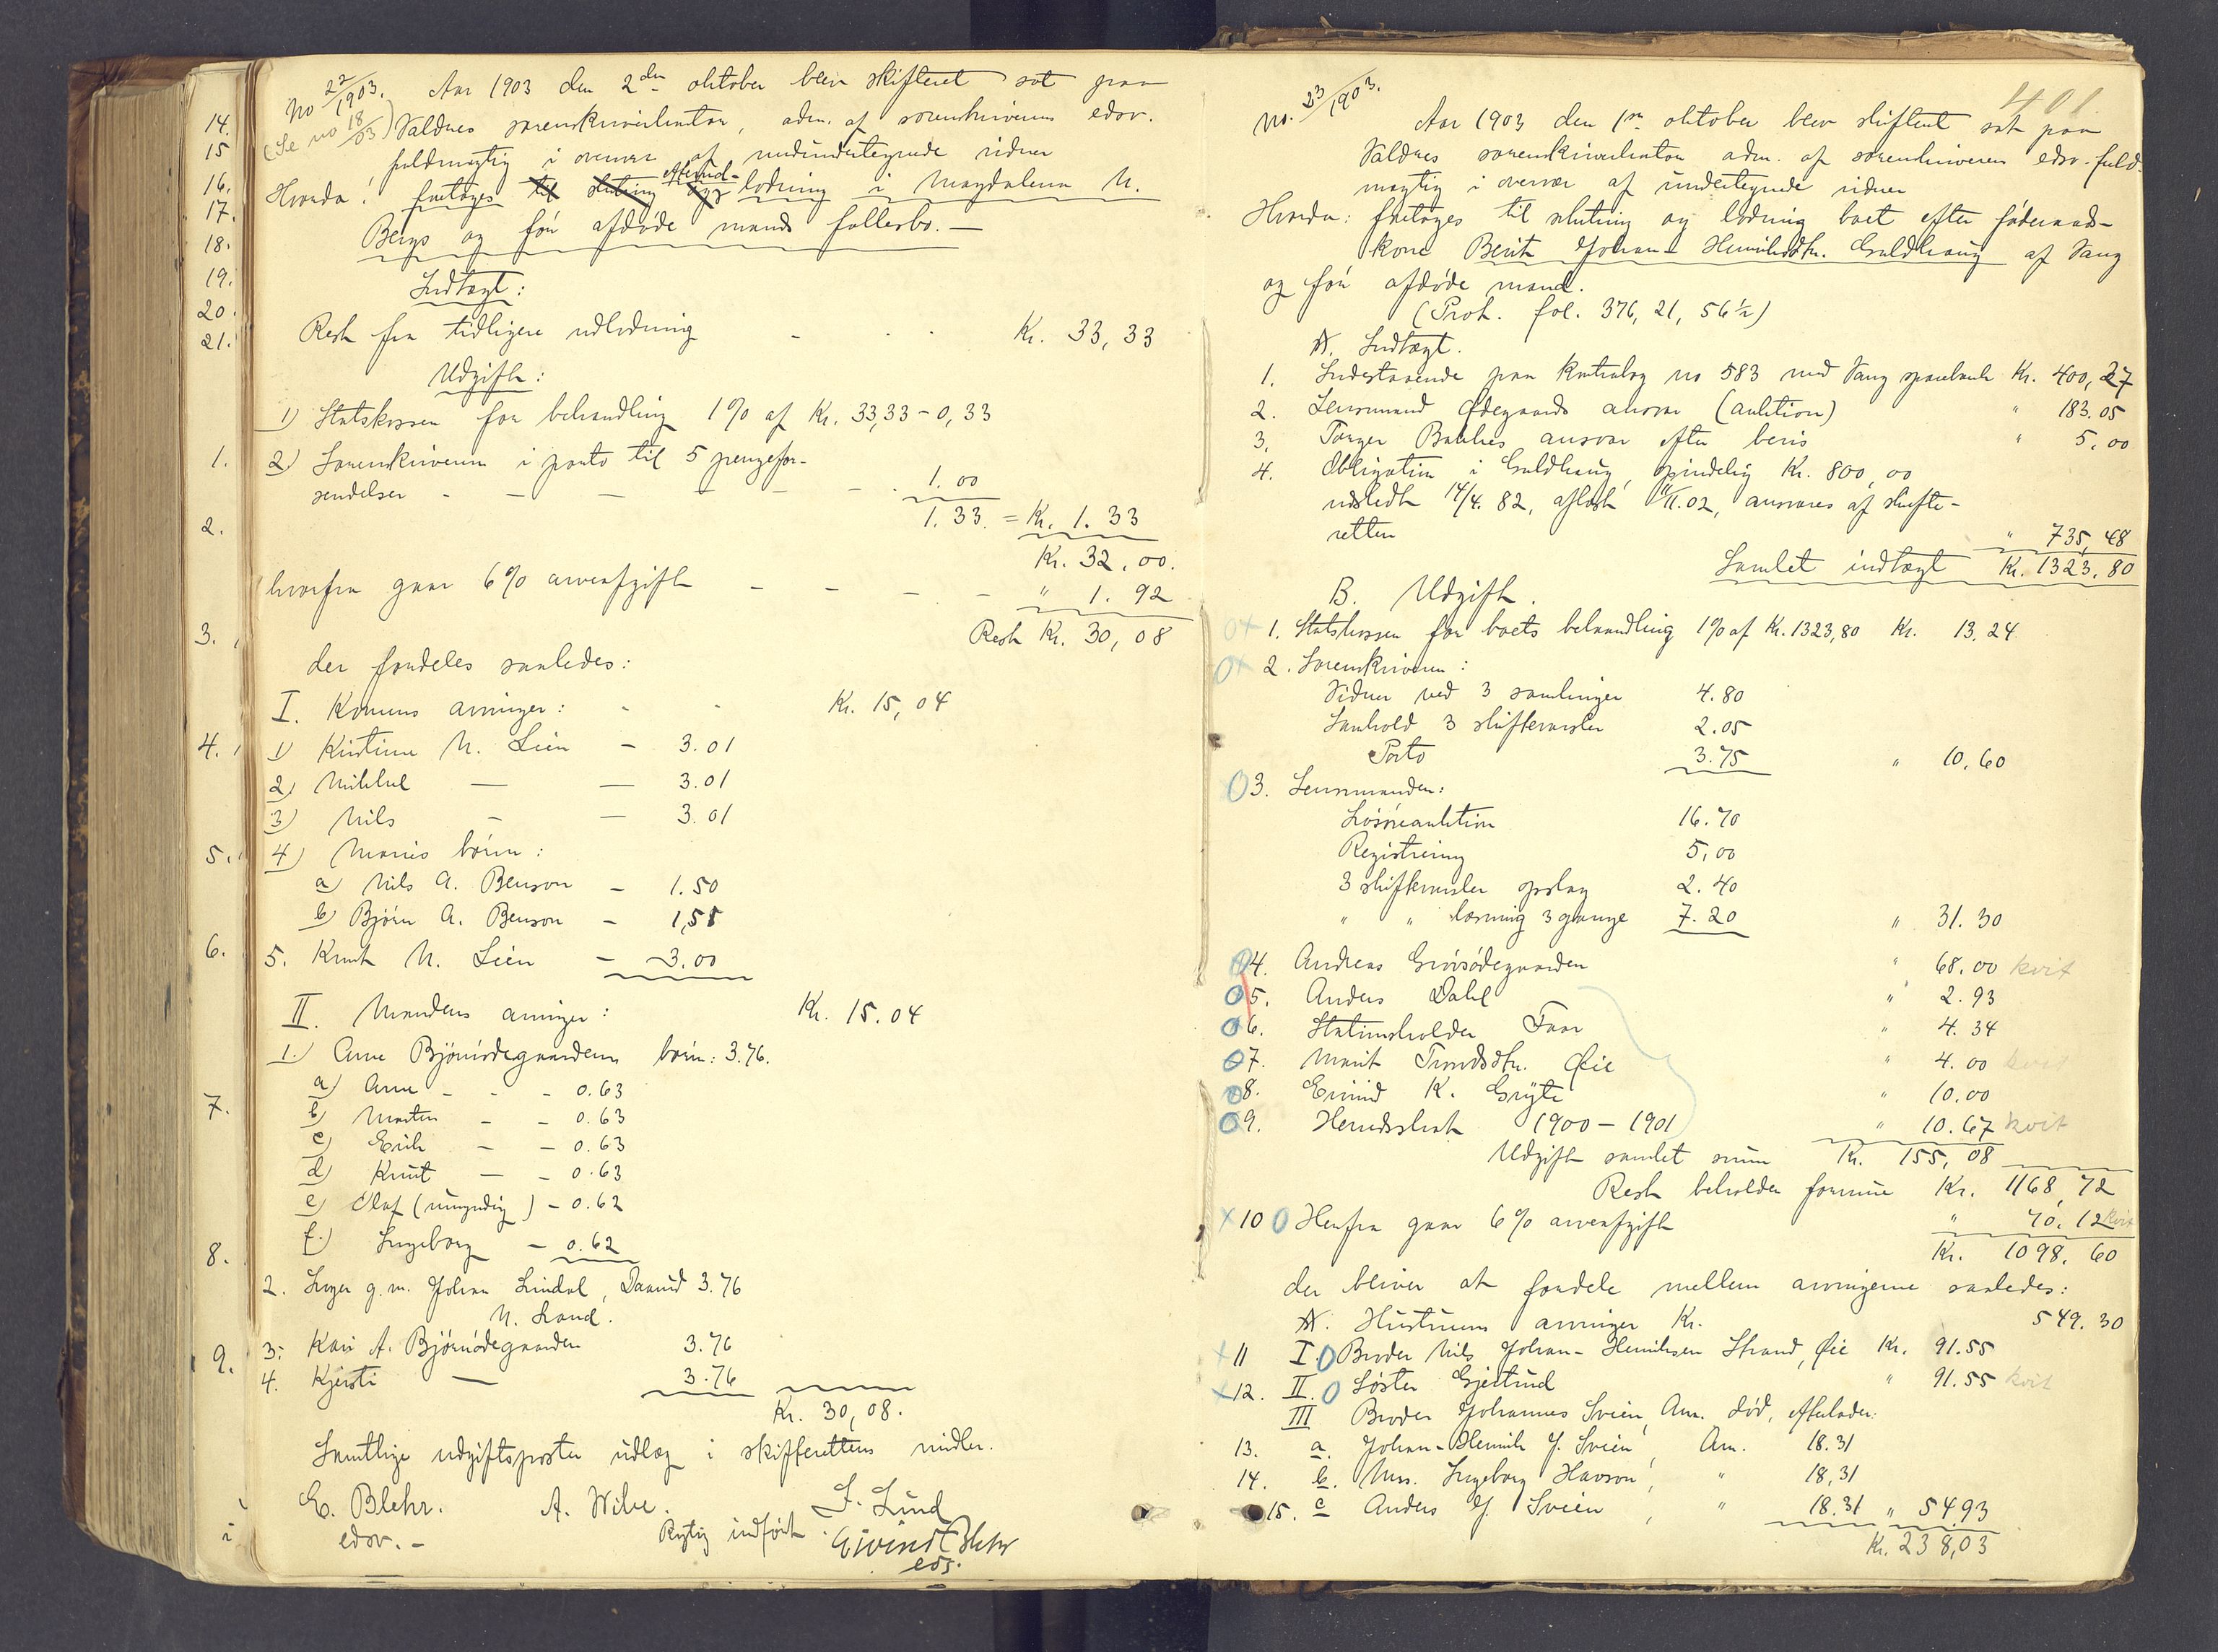 14.
15
16.
17.
18.
19.
20.
21.
1.
2.
3.
4.
5.
6.
7.
8.
9.
No 22/1903. Aar 1903 den 2den oktober blev skifteret sat paa
(Se no 18/03) Valdres sorenskriverkontor, adm. af sorenskriverens edsv.
fuldmægtig i overvær af medundertegnede vidner
Hvorda: foretoges til slutning og efterudlodning i Magdalena N.
Bergs og før afdøde mands fællesbo. —
Indtægt:
Rest fra tidligere udlodning - - - Kr. 33,33
Udgift:
1) Statskassen for behandling 1% af Kr. 33,33 - 0,33
2) Sorenskriveren i porto til 5 pengefor-
sendelser - - - - - - 1.00
1.33 = Kr. 1.33
Kr. 32.00.
hvorfra gaar 6% arveafgift - - - - " 1.92
Rest Kr. 30,08
der fordeles saaledes:
I. Konens arvinger: - - Kr. 15,04
1) Kirstine N. Lien - 3.01
2) Mikkel — — 3.01
3) Nils - — 3.01
4) Maris børn:
a) Nils A. Benson - 1.50
b) Bjørn A. Benson - 1,51
5. Knut N. Lien - 3.00
II. Mandens arvinger: Kr. 15.04
1.) Arne Bjørnsdegaardens børn: 3.76.
a) Arne - - - 0.63
b) Marten - - 0.63
c) Erik - - 0.63
d) Knut - - 0.63
e) Olaf (umyndig) - 0.62
f.) Ingeborg - 0.62
2. Inger g. m. Johan Lindal, 3.76
N. Land.
3. Kari A. Bjørnødegaarden 3.76
4. Kjersti — 3.76
Kr. 30,08.
Samtlige udgiftsposter udlæg i skifterettens midler.
E. Blehr. A. Wibe. J. Lund
edsv. - Rigtig indført: Eivind Blehr
eds.
401.
No. 23/1903.
Aar 1903 den 1ste oktober blev skifteret sat paa
Valdres sorenskriverkontor adm. af sorenskriverens edsv. fuld-
mægtig i overvær af undertegnede vidner
Hvorda: foretoges til slutning og lodning boet efter føderaads-
kone Berit Johan-Henriksdtr. Guldhaug af Vang
og før afdøde mand.
(Prot. fol. 376, 21, 56½)
A. Indtægt.
1. Indestaaende paa Kontrabog no 583 med Vang sparebank Kr. 400,27
2. Lensmand Ødegaards ansvar (auktion) " 183.05
3. Torger Bakkes ansvar efter bevis " 5.00
4. Obligation i Guldhaug, oprindelig Kr. 800,00
udstedt 14/4. 82, aflæst 02, ansvares af skifte-
retten " 735,48
Samlet indtægt Kr. 1323,80
B. Udgift.
1. Statskassen for boets behandling 1% af Kr. 1323,80 Kr. 13,24
2. Sorenskriveren:
Vidner ved 3 samlinger 4.80
Indhold 3 skiftevarsler 2.05
Porto 3.75 " 10.60
3. Lensmanden:
Løsøreauktion 16.70
Registrering 5,00
3 skiftevarsler opslag 2.40
" " læsning 3 gange 7.20 " 31.30
4. Andreas " 68.00 kvit
5. Anders Dahl " 2.93
6. Stationsholder Faar " 4.34
7. Marit Trondsdtr. Øie " 4.00 kvit
8. Eivind K. Gryte " 10.00
9. Herredsskat 1900 - 1901 " 10.67 kvit
Udgift samlet sum Kr. 155,08
Rest beholden formue Kr. 1168,72
10 Herfra gaar 6% arveafgift " 70.12 kvit
Kr. 1098.60
der bliver at fordele mellem arvingerne saaledes:
A. Hustruens arvinger Kr. 549.30
11 I. Broder Nils Johan-Henriksen Strand, Øie Kr. 91.55
12. II. Søster Gjertrud " 91.55 kvit
III Broder Johannes Svien, Am. død, efterlader:
13. a. Johan-Henrik J. Svien, Am. 18.31
14. b. Mrs. Ingeborg Havson, " 18,31
15. c Anders J. Svien, " 18.31 " 54.93
Kr. 238,03